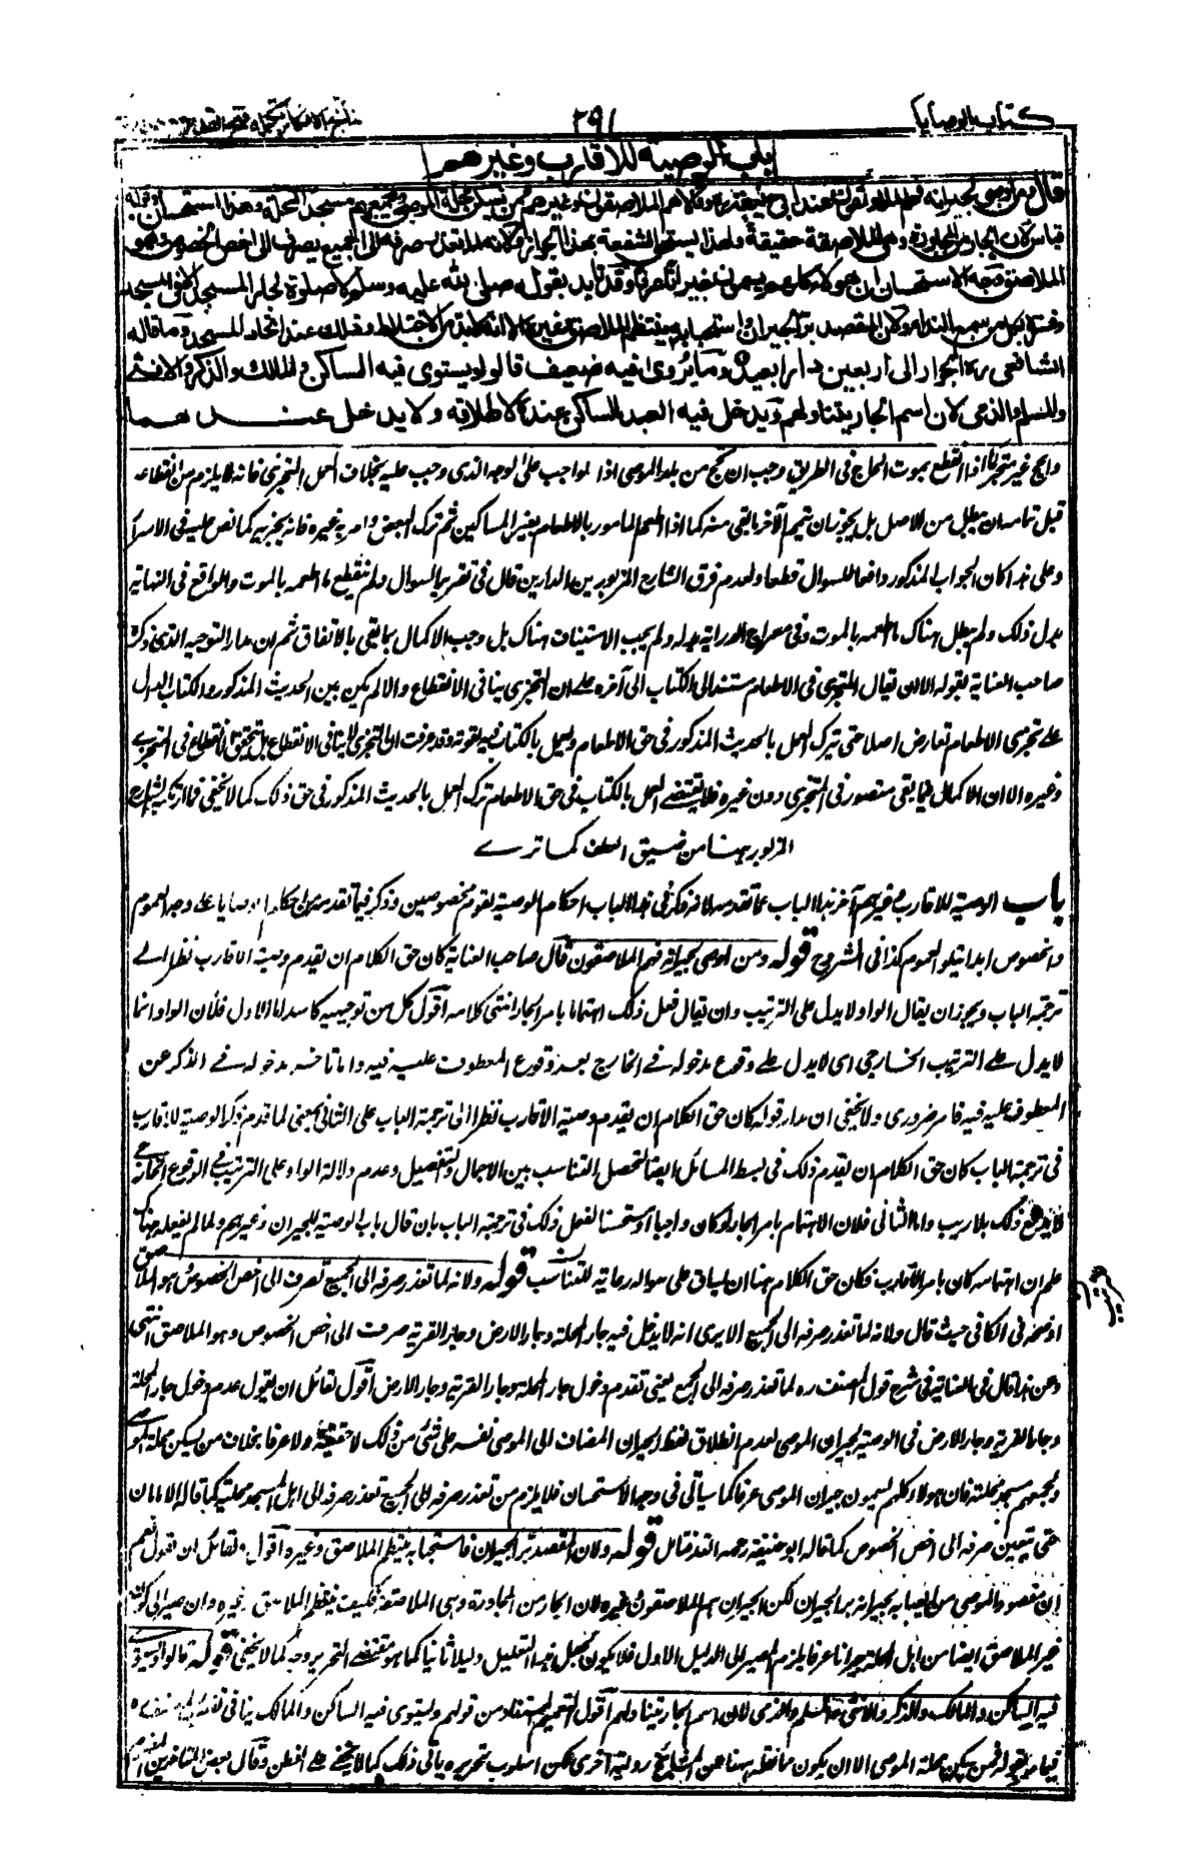 كتاب الوصايا
٢٩١
نتائج الافكار تكملة فتح القدير
باب الوصية للاقارب وغيرهم
قال ومن اوصى لجيرانه فهم الملاصقون عند ابى حنيفة رح وقالا هم الملاصقون وغيرهم ممن يسكن محلة الموصى ويجمعهم مسجد المحلة وهذا استحسان وقوله
قياس لان الجار من المجاورة وهى الملاصقة حقيقة ولهذا يستحق الشفعة بهذا الجوار ولانه لما تعذر صرفه الى الجميع يصرف الى اخص الخصوص وهو
الملاصق وجه الاستحسان ان هولاء كلهم يسمون جيرانا عرفا وقد تايد بقوله صلى الله عليه وسلم لا صلوة لجار المسجد الا فى المسجد
وفسره بكل من سمع النداء ولان المقصد بر الجيران واستحبابه ينتظم الملاصق وغيره الا انه لابد من الاختلاط وذلك عند اتحاد المسجد وما قاله
الشافعى ره الجوار الى اربعين دارا بعيد وما يروى فيه ضعيف قالوا ويستوى فيه الساكن والمالك والذكر والانثى
والمسلم والذمى لان اسم الجار يتناولهم ويدخل فيه العبد الساكن عنده لاطلاقه ولا يدخل عندهما
والحج غير متجز فاذا انقطع بموت الحاج فى الطريق وجب ان يحج من بلد الموصى اذ الواجب على الوجه الذى وجب عليه بخلاف العمل المتجزى فانه لا يلزم من انقطاعه
قبل تمامه ان يبطل من الاصل بل يجوز ان يتمم الآخر ما بقى منه كما اذا اطعم المامور بالاطعام بعض المساكين ثم ترك البعض وامر به غيره فانه يجزيه كما نص عليه فى الاسرار
وعلى هذا كان الجواب المذكور دافعا للسوال قطعا ولعدم فرق الشارح المزبور بين الدارين قال فى تقرير السوال ولم ينقطع ما اطعمه بالموت والواقع فى النهاية
بدل ذلك ولم يبطل هناك ما اطعمه بالموت وفى معراج الدراية بدله ولم يجب الاستيناف هناك بل وجب الاكمال بما بقى بالاتفاق ثم ان مدار التوجيه الذى ذكره
صاحب العناية بقوله الا ان يقال التجزى فى الاطعام مستند الى الكتاب الى آخره على ان التجزى ينافى الانقطاع والا لم يكن بين الحديث المذكور والكتاب الدال
على تجزى الاطعام تعارض اصلا حتى يترك العمل بالحديث المذكور فى حق الاطعام ويعمل بالكتاب فيه لقوته وقد عرفت ان التجزى لا ينافى الانقطاع بل يتحقق الانقطاع فى المتجزى
وغيره الا ان الاكمال بما بقى متصور فى المتجزى دون غيره فلا يقتضى العمل بالكتاب فى حق الاطعام ترك العمل بالحديث المذكور فى حق ذلك كما لا يخفى فما ارتكبه الشارح
المزبور ههنا من ضيق العطن كما ترى
باب الوصية للاقارب وغيرهم آخر هذا الباب عما تقدمه لانه ذكر فى هذا الباب احكام الوصية لقوم مخصوصين وذكر فيما تقدمه من احكام الوصايا على وجه العموم
والخصوص ابدا يتلو العموم كذا فى الشروح قوله ومن اوصى لجيرانه فهم الملاصقون قال صاحب العناية كان حق الكلام ان يقدم وصية الاقارب نظرا الى
ترجمة الباب ويجوز ان يقال الواو لا يدل على الترتيب وان يقال فعل ذلك اهتماما بامر الجار انتهى كلامه اقول كل من توجيهيه كاسد اما الاول فلان الواو انما
لا يدل على الترتيب الخارجى اى لا يدل على وقوع مدخوله فى الخارج بعد وقوع المعطوف عليه فيه واما تاخر مدخوله فى الذكر عن
المعطوف عليه فيه فامر ضرورى ولا يخفى ان مدار قوله كان حق الكلام ان يقدم وصية الاقارب نظرا الى ترجمة الباب على الثانى بمعنى لما قدم ذكر الوصية للاقارب
فى ترجمة الباب كان حق الكلام ان يقدم ذلك فى بسط المسائل ايضا لتحصل التناسب بين الاجمال والتفصيل وعدم دلالة الواو على الترتيب فى الوقوع الخارجى
لا يدفع ذلك بلا ريب واما الثانى فلان الاهتمام بامر الجار لو كان واجبا او مستحسنا لفعل ذلك فى ترجمة الباب بان قال باب الوصية للجيران وغيرهم ولما لم يفعله هناك
علم ان اهتمامه كان بامر الاقارب فكان حق الكلام ههنا ان يساق على منواله رعاية للتناسب قوله ولانه لما تعذر صرفه الى الجميع تصرف الى اخص الخصوص وهو الملاصق
اوضحه فى الكافى حيث قال ولانه لما تعذر صرفه الى الجميع الا يرى انه لا يدخل فيه جار المحلة وجار الارض وجار القرية صرف الى اخص الخصوص وهو الملاصق انتهى
وعن هذا قال فى العناية فى شرح قول المصنف ره لما تعذر صرفه الى الجميع يعنى لعدم دخول جار المحلة وجار القرية وجار الارض اقول لقائل ان يقول عدم دخول جار المحلة
وجار القرية وجار الارض فى الوصية لجيران الموصى لعدم انطلاق لفظ الجيران المضاف الى الموصى نفسه على شئ من ذلك لا حقيقة ولا عرفا بخلاف من يسكن محلة الموصى
ويجمعهم مسجد محلته فان هولاء كلهم يسمون جيران الموصى عرفا كما سيأتى فى وجه الاستحسان فلا يلزم من تعذر صرفه الى الجميع تعذر صرفه الى اهل المسجد محلته كما قاله الامامان
حتى يتعين صرفه الى اخص الخصوص كما قاله ابو حنيفة رحمه الله فتامل قوله ولان المقصد بر الجيران فاستحبابه ينتظم الملاصق وغيره اقول ولقائل ان يقول نعم
ان مقصود الموصى من ايصائه لجيرانه بر الجيران لكن الجيران هم الملاصقون لا غيره لان الجار من المجاورة وهى الملاصقة فكيف ينتظم الملاصق وغيره وان صير الى كون
غير الملاصق ايضا من اهل المحلة جيرانا عرفا يلزم المصير الى الدليل الاول فلا يكون لجعل هذا التعليل دليلا ثانيا كما هو مقتضى التحرير وجه كما لا يخفى قوله قالوا ويستوى
فيه الساكن والمالك والذكر والانثى والمسلم والذمى لان اسم الجار يتناولهم اقول التعميم المستفاد من قولهم ويستوى فيه الساكن والمالك ينافى
فيما مر بقوله ممن يسكن محلة الموصى الا ان يكون ما نقله ههنا عن المشايخ رواية اخرى لكن اسلوب تحريره يأبى ذلك كما لا يخفى على الفطن وقال بعض المتاخرين